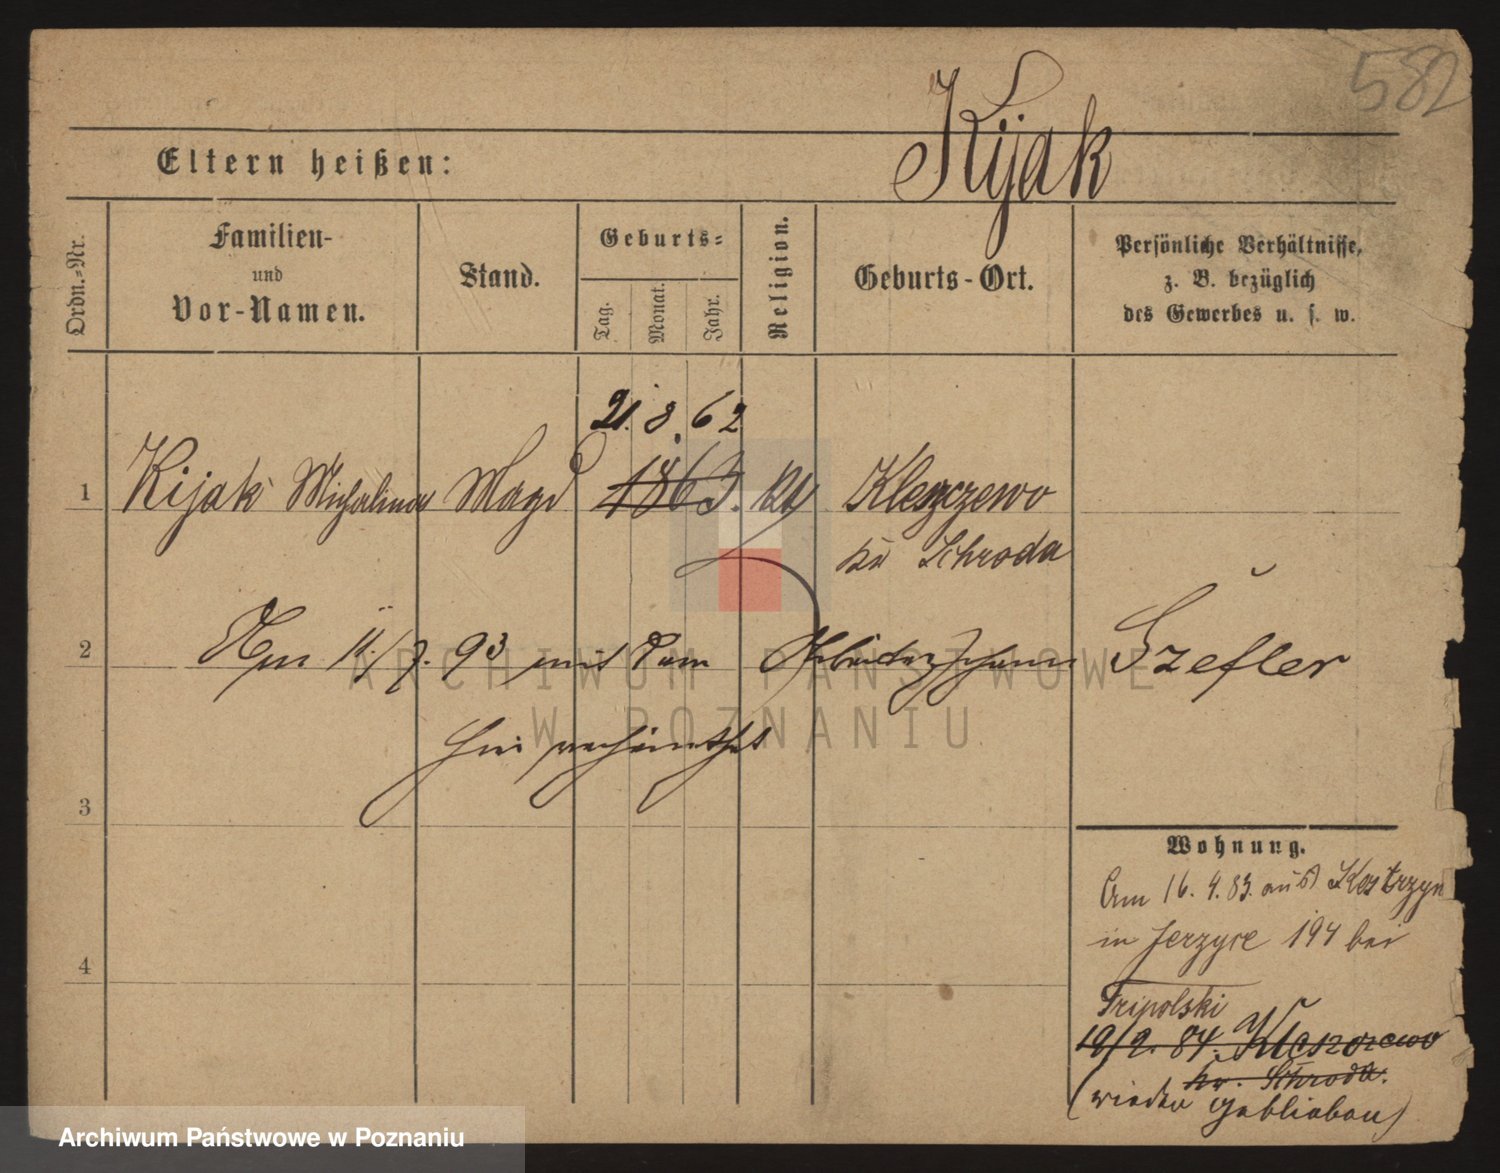 582
Kijak
Eltern heißen:
Ordn.=Nr.
Familien-
und
Vor-Namen.
Stand.
Geburts=
Tag.
Monat.
Jahr.
Religion.
Geburts-Ort.
Persönliche Verhältnisse,
z. B. bezüglich
des Gewerbes u. s. w.
21. 8. 62
1 Kijak Michalina Magd 1863. kt Kleszczewo
kr Schroda
2 Am 11./7. 93 mit dem Arbeiter Johann Szefler
hier verheirathet
3
Wohnung.
Am 16. 4. 83. aus Kostrzyn
in Jerzyce 194 bei
4
Tripolski
19/2. 84. Kleszczewo
kr. Schroda.
(wieder geblieben)
ARCHIWUM PAŃSTWOWE
W POZNANIU
Archiwum Państwowe w Poznaniu